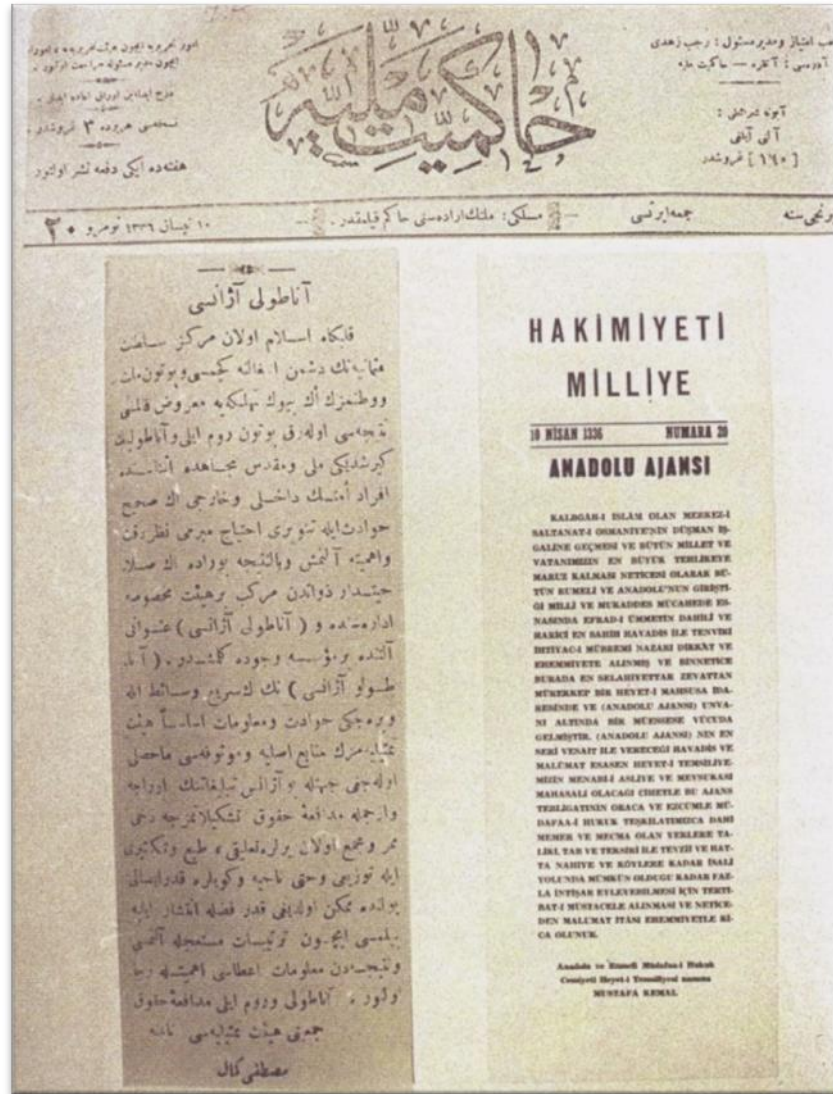 امور تحریریه ایچون هیئت تحریریه یه و امور
ایچون مدیر مسئوله مراجعت اولنور .
درج ایدلمین اوراق اعاده ایدلمز .
نسخه‌سی هریرده ۳ غروشدر .
هفته‌ده ایکی دفعه نشر اولنور
حاکمیت ملیه
صاحب امتیاز ومدیر مسئول : رجب زهدی
آدرسی : آنقره — حاکمیت ملیه
آبونه شرائطی :
آلتی آیلغی
[ ١٤٠ ] غروشدر
برنجی سنه
جمعه ایرتسی
مسلکی : ملتك اراده‌سنی حاکم قیلمقدر .
١٠ نیسان ١٣٣٦ نومرو ٢٠
آناطولی آژانسی
قلبکاه اسلام اولان مرکز سلطنت
عثمانیه‌نك دشمن اشغالنه کچمسی وبوتون ملت
ووطنمزك اك بیوك تهلکه‌یه معروض قالمسی
نتیجه‌سی اوله‌رق بوتون روم ایلی وآناطولینك
کیرشدیکی ملی ومقدس مجاهده اثناسنده
افراد امتك داخلی وخارجی اك صحیح
حوادث ایله تنویری احتیاج مبرمی نظر دقت
واهمیته آلنمش وبالنتیجه بوراده اك صلا
حیتدار ذواتدن مرکب برهیئت مخصوصه
اداره‌سنده و ( آناطولی آژانسی ) عنوانی
آلتنده برمؤسسه وجوده کلمشدر . ( آنا
طولو آژانسی ) نك اك سریع وسائط ایله
ویره‌جکی حوادث ومعلومات اساساً هیئت
تمثیلیه‌مزك منابع اصلیه وموثوقه‌سی محصلی
اوله‌جغی جهتله بو آژانس تبلیغاتنك اوراجه
وازجمله مدافعهٔ حقوق تشکیلاتمزجه دخی
ممر ومجمع اولان یرلره تعلیقی ، طبع وتکثیری
ایله توزیعی وحتی ناحیه وکویلره قدر ایصالی
یولنده ممکن اولدیغی قدر فضله انتشار ایلیه
بیلمسی ایچون ترتیبات مستعجله آلنمسی
ونتیجه‌دن معلومات اعطاسی اهمیتله رجا
اولنور . آناطولی وروم ایلی مدافعهٔ حقوق
جمعیتی هیئت تمثیلیه‌سی نامنه
مصطفی کمال
HAKİMİYETİ
MİLLİYE
10 NİSAN 1336 NUMARA 20
ANADOLU AJANSI
KALBGÂH-I İSLÂM OLAN MERKEZ-İ
SALTANAT-I OSMANİYE'NİN DÜŞMAN İŞ-
GALİNE GEÇMESİ VE BÜTÜN MİLLET VE
VATANIMIZIN EN BÜYÜK TEHLİKEYE
MARUZ KALMASI NETİCESİ OLARAK BÜ-
TÜN RUMELİ VE ANADOLU'NUN GİRİŞTİ-
Ğİ MİLLİ VE MUKADDES MÜCAHEDE ES-
NASINDA EFRAD-I ÜMMETİN DAHİLİ VE
HARİCİ EN SAHİH HAVADİS İLE TENVİRİ
İHTİYAC-I MÜBREMİ NAZARI DİKKÂT VE
EHEMMİYETE ALINMIŞ VE BİNNETİCE
BURADA EN SELAHİYETTAR ZEVATTAN
MÜREKKEP BİR HEYET-İ MAHSUSA İDA-
RESİNDE VE (ANADOLU AJANSI) UNVA-
NI ALTINDA BİR MÜESSESE VÜCUDA
GELMİŞTİR. (ANADOLU AJANSI) NIN EN
SERİ VESAİT İLE VERECEĞİ HAVADİS VE
MALÛMAT ESASEN HEYET-İ TEMSİLİYE-
MİZİN MENABİ-İ ASLİYE VE MEVSUKASI
MAHASALI OLACAĞI CİHETLE BU AJANS
TEBLİGATININ ORACA VE EZCÜMLE MÜ-
DAFAA-İ HUKUK TEŞKİLATIMIZCA DAHİ
MEMER VE MECMA OLAN YERLERE TA-
LİKİ, TAB VE TEKSİRİ İLE TEVZİİ VE HAT-
TA NAHİYE VE KÖYLERE KADAR İSALİ
YOLUNDA MÜMKÜN OLDUĞU KADAR FAZ-
LA İNTİŞAR EYLEYEBİLMESİ İÇİN TERTİ-
BAT-I MÜSTACELE ALINMASI VE NETİCE-
DEN MALUMAT İTÂSI EHEMMİYETLE Rİ-
CA OLUNUR.
Anadolu ve Rumeli Müdafaa-i Hukuk
Cemiyeti Heyet-i Temsiliyesi namına
MUSTAFA KEMAL